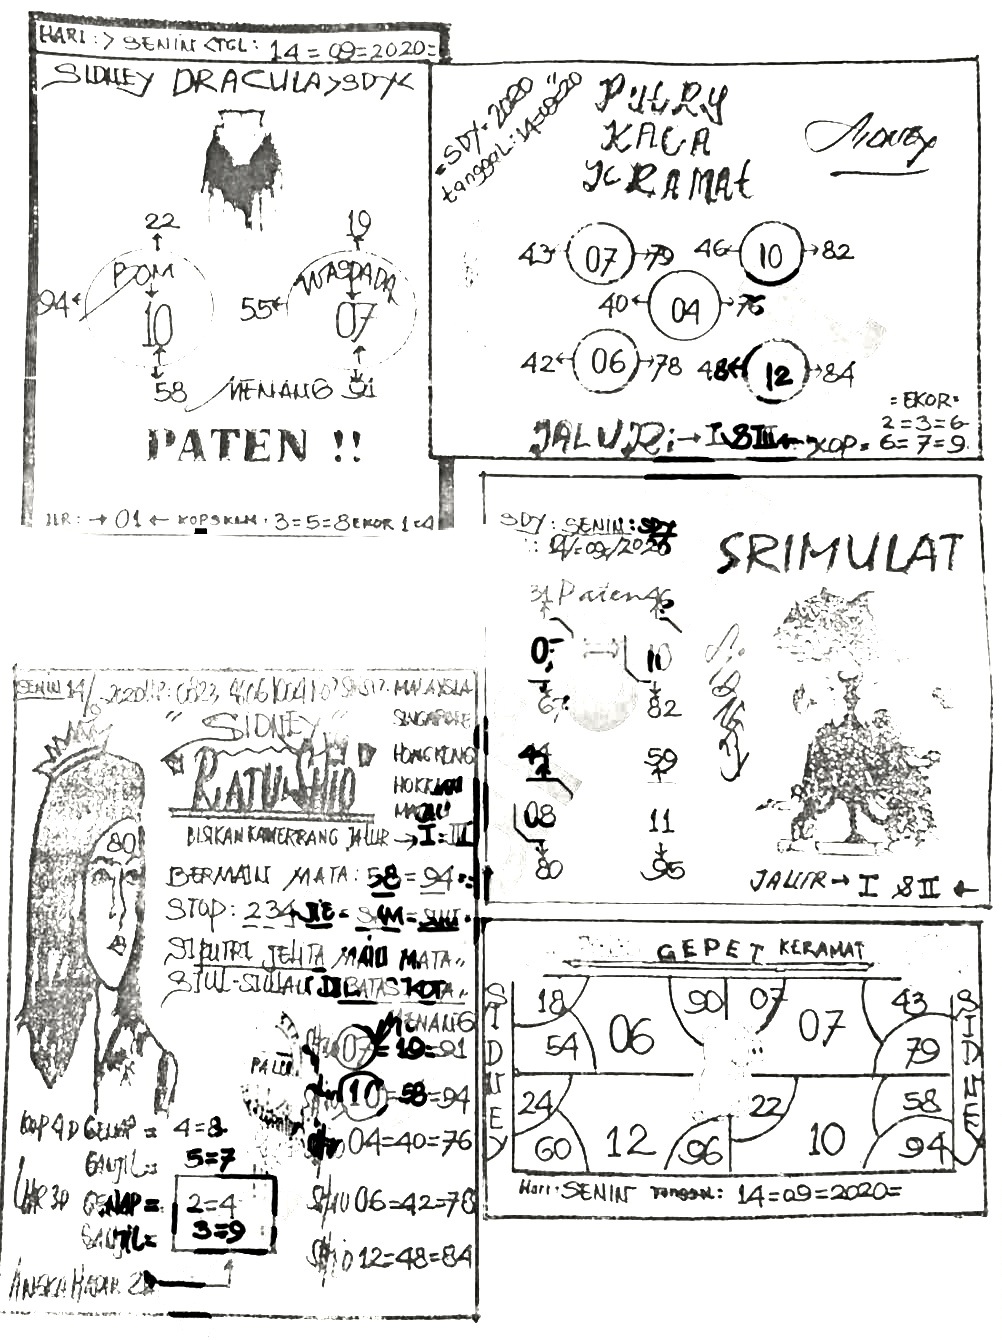 HARI :> SENIN <TGL: 14=09=2020=
SIDNEY DRACULA >SDY<
22 19
BOM WASPADA
94 10 55 07
58 MENANG 91
PATEN !!
→ 01 ← KOP 3=5=8 EKOR 1=4
=SDY=2020
tanggal:14=09=20
KACA
KRAMAt
SIDNEY
43 07 79 46 10 82
40 04 76
42 06 78 48 12 84
=EKOR=
2=3=6
JALUR: → I & III ← KOP= 6=7=9
SDY: SENIN: SDY
14/=09=/2020
SRIMULAT
31 Paten 46
10
67 82
44 59
08 11
80 95
JALUR → I & II ←
SENIN 14/ MALAYSIA
"SIDNEY" SINGAPORE
HONGKONG
RATU SHIO
JALUR → I=III
80
BERMAIN MATA: 58=94
STOP: 234
SIPUTRI JELITA MAIO MATA
SIUL-SIULAN DIBATAS KOTA
MENANG
07=19=91
10=58=94
04=40=76
SHIO 06=42=78
SHIO 12=48=84
KOP 4D GENAP= 4=8
GANJIL= 5=7
3D GENAP= 2=4
GANJIL= 3=9
GEPET KERAMAT
SIDNEY
18 90 07 43
06 07
54 79
24 22 58
12 10
60 96 94
SIDNEY
Hari: SENIN Tanggal: 14=09=2020=